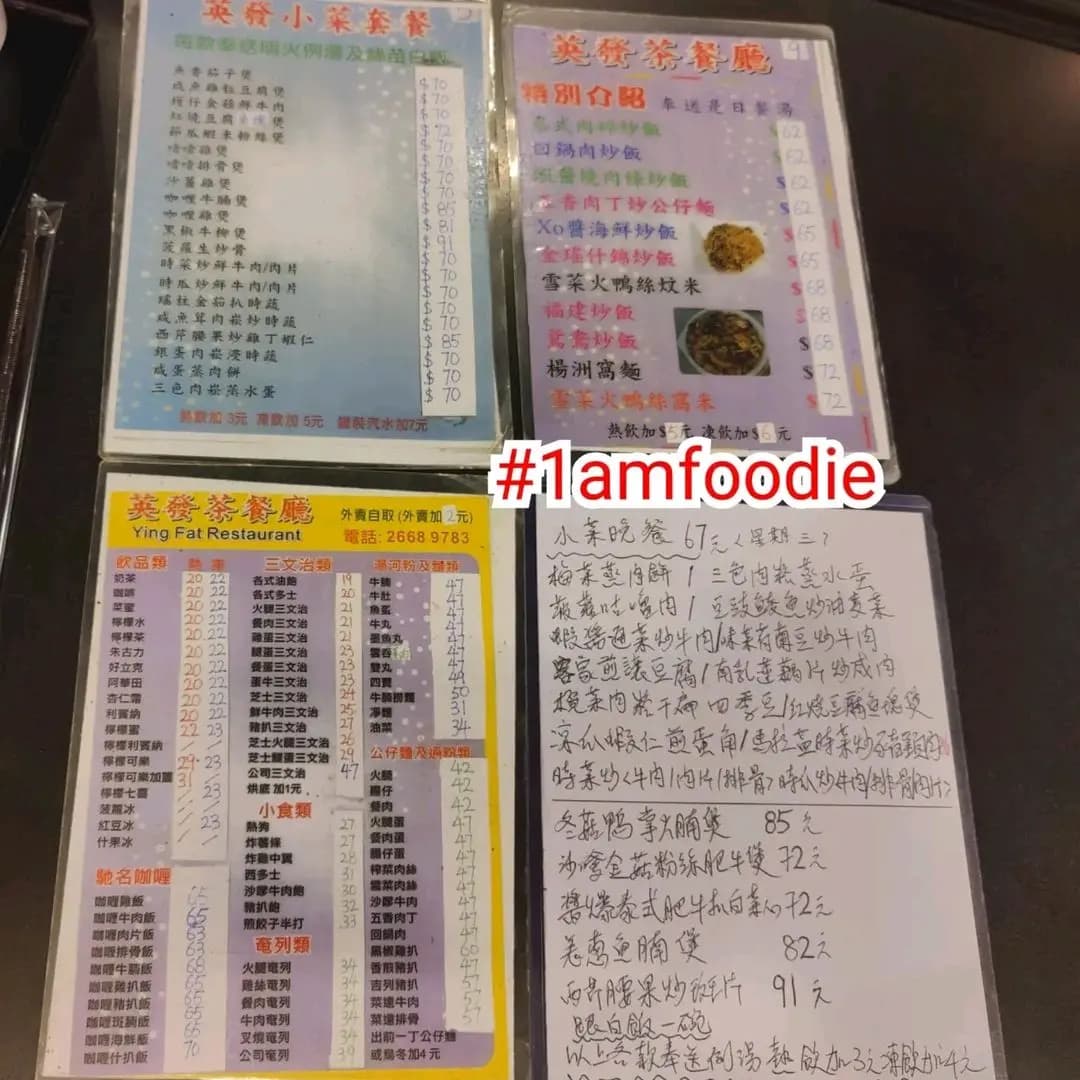 英發小菜套餐
每款奉送明火例湯及絲苗白飯
魚香茄子煲 $70
咸魚雞粒豆腐煲 $70
$70
紅燒豆腐 煲 $72
節瓜蝦米粉絲煲 $70
啫啫雞煲 $70
啫啫排骨煲 $70
沙薑雞煲 $70
咖喱牛腩煲 $85
咖喱雞煲 $81
黑椒牛柳煲 $91
菠蘿生炒骨 $70
時菜炒鮮牛肉/肉片 $70
時瓜炒鮮牛肉/肉片 $70
瑤柱金菇扒時蔬 $70
咸魚茸肉崧炒時蔬 $70
西芹腰果炒雞丁蝦仁 $85
銀蛋肉崧浸時蔬 $70
咸蛋蒸肉餅 $70
三色肉崧蒸水蛋 $70
熱飲加3元 凍飲加5元 罐裝汽水加7元
英發茶餐廳
特別介紹 奉送是日餐湯
泰式肉碎炒飯 $62
回鍋肉炒飯 $62
燒肉條炒飯 $62
五香肉丁炒公仔麵 $62
Xo醬海鮮炒飯 $65
金瑤什錦炒飯 $65
雪菜火鴨絲炆米 $68
福建炒飯 $68
鴛鴦炒飯 $68
楊洲窩麵 $72
雪菜火鴨絲窩米 $72
熱飲加$5元 凍飲加$6元
#1amfoodie
英發茶餐廳
Ying Fat Restaurant
外賣自取(外賣加2元)
電話: 2668 9783
飲品類 熱 凍
奶茶 20 22
咖啡 20 22
菜蜜 20 22
檸檬水 20 22
檸檬茶 20 22
朱古力 20 22
好立克 20 22
阿華田 20 22
杏仁霜 20 22
利賓納 20 22
檸檬蜜 22 23
檸檬利賓納 / /
檸檬可樂 29 23
檸檬可樂加薑 31 /
檸檬七喜 / 23
菠蘿冰 / /
紅豆冰 / 23
什果冰 / /
馳名咖喱
咖喱雞飯 65
咖喱牛肉飯 65
咖喱肉片飯 63
咖喱排骨飯 63
咖喱牛腩飯 68
咖喱雞扒飯 65
咖喱豬扒飯 65
咖喱斑腩飯 65
咖喱海鮮飯 65
咖喱什扒飯 70
三文治類
各式油飽 19
各式多士 20
火腿三文治 21
餐肉三文治 21
雞蛋三文治 21
腿蛋三文治 23
餐蛋三文治 23
蛋牛三文治 23
芝士三文治 24
鮮牛肉三文治 25
豬扒三文治 27
芝士火腿三文治 26
芝士腿蛋三文治 29
公司三文治 47
烘底 加1元
小食類
熱狗 27
炸薯條 27
炸雞中翼 28
西多士 31
沙嗲牛肉飽 30
豬扒飽 32
煎餃子半打 33
奄列類
火腿奄列 34
雞絲奄列 34
餐肉奄列 34
牛肉奄列 34
叉燒奄列 34
公司奄列 39
湯河粉及麵類
牛腩 47
牛肚 47
魚蛋 47
牛丸 47
墨魚丸 47
雲吞 47
雙丸 47
四寶 49
牛腩撈麵 50
淨麵 31
油菜 34
公仔麵及通粉類
火腿 42
腸仔 42
餐肉 42
火腿蛋 47
餐肉蛋 47
腸仔蛋 47
榨菜肉絲 47
雪菜肉絲 47
沙嗲牛肉 47
五香肉丁 47
回鍋肉 47
黑椒雞扒 60
香煎豬扒 47
吉列豬扒 57
菜遠牛肉 57
菜遠排骨 57
出前一丁公仔麵
或烏冬加4元
小菜晚餐 67元(星期三)
梅菜蒸肉餅/三色肉崧蒸水蛋
菠蘿咕嚕肉/豆豉鯪魚炒油麥菜
蝦醬通菜炒牛肉/味菜荷蘭豆炒牛肉
客家煎讓豆腐/南乳蓮藕片炒咸肉
欖菜肉崧干扁四季豆/紅燒豆腐魚塊煲
涼瓜蝦仁煎蛋角/馬拉盞時菜炒
時菜炒(牛肉/肉片/排骨)時瓜炒牛肉/排骨/肉片)
冬菇鴨掌火腩煲 85元
沙嗲金菇粉絲肥牛煲 72元
醬爆泰式肥牛扒白菜心 72元
羌蔥魚腩煲 82元
西芹腰果炒斑片 91元
跟白飯一碗
以上各款奉送例湯 熱飲加3元 凍飲加4元